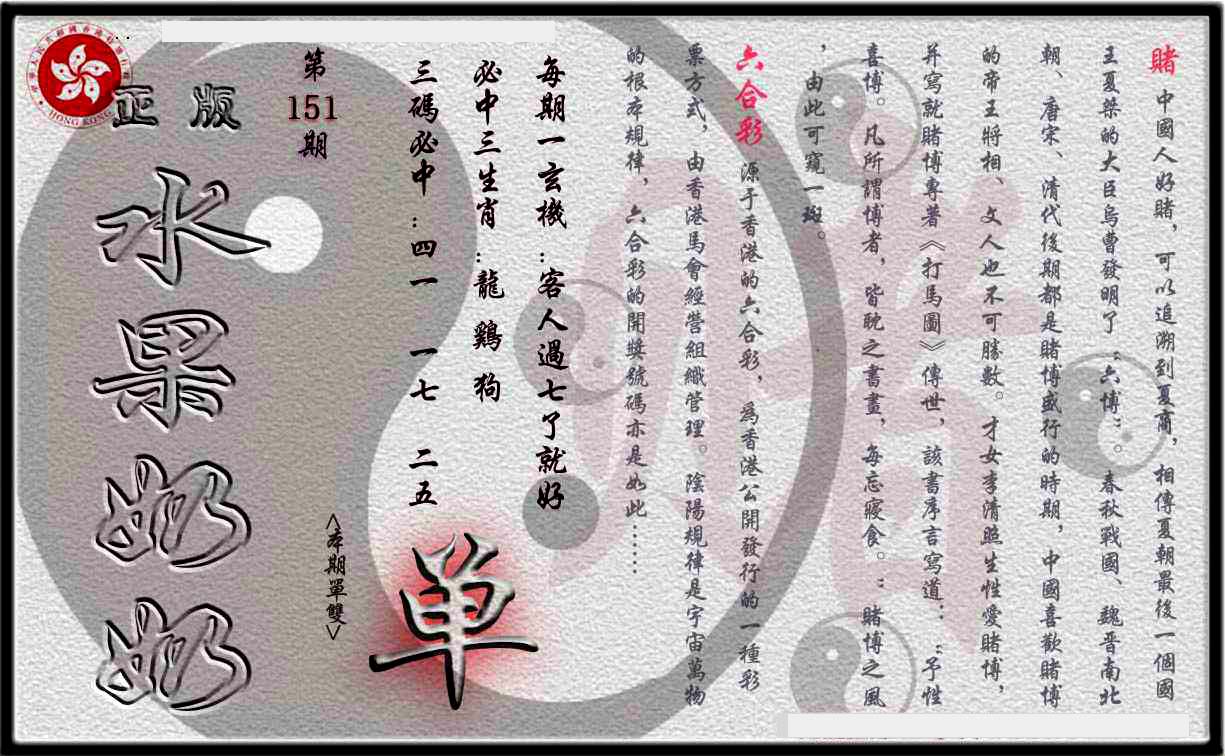 賭 中國人好賭，可以追溯到夏商，相傳夏朝最後一個國
王夏桀的大臣烏曹發明了“六博”。春秋戰國、魏晋南北
朝、唐宋、清代後期都是賭博盛行的時期，中國喜歡賭博
的帝王將相、文人也不可勝數。才女李清照生性愛賭博，
并寫就賭博專著《打馬圖》傳世，該書序言寫道：“予性
喜博。凡所謂博者，皆耽之書畫，每忘寢食。”賭博之風
，由此可窺一斑。
六合彩 源于香港的六合彩，爲香港公開發行的一種彩
票方式，由香港馬會經營組織管理。陰陽規律是宇宙萬物
的根本規律，六合彩的開獎號碼亦是如此……
每期一玄機：客人過七了就好
必中三生肖：龍 鷄 狗
三碼必中：四一 一七 二五
<本期單雙>
单
第
151
期
正版
水果奶奶
HONG KONG